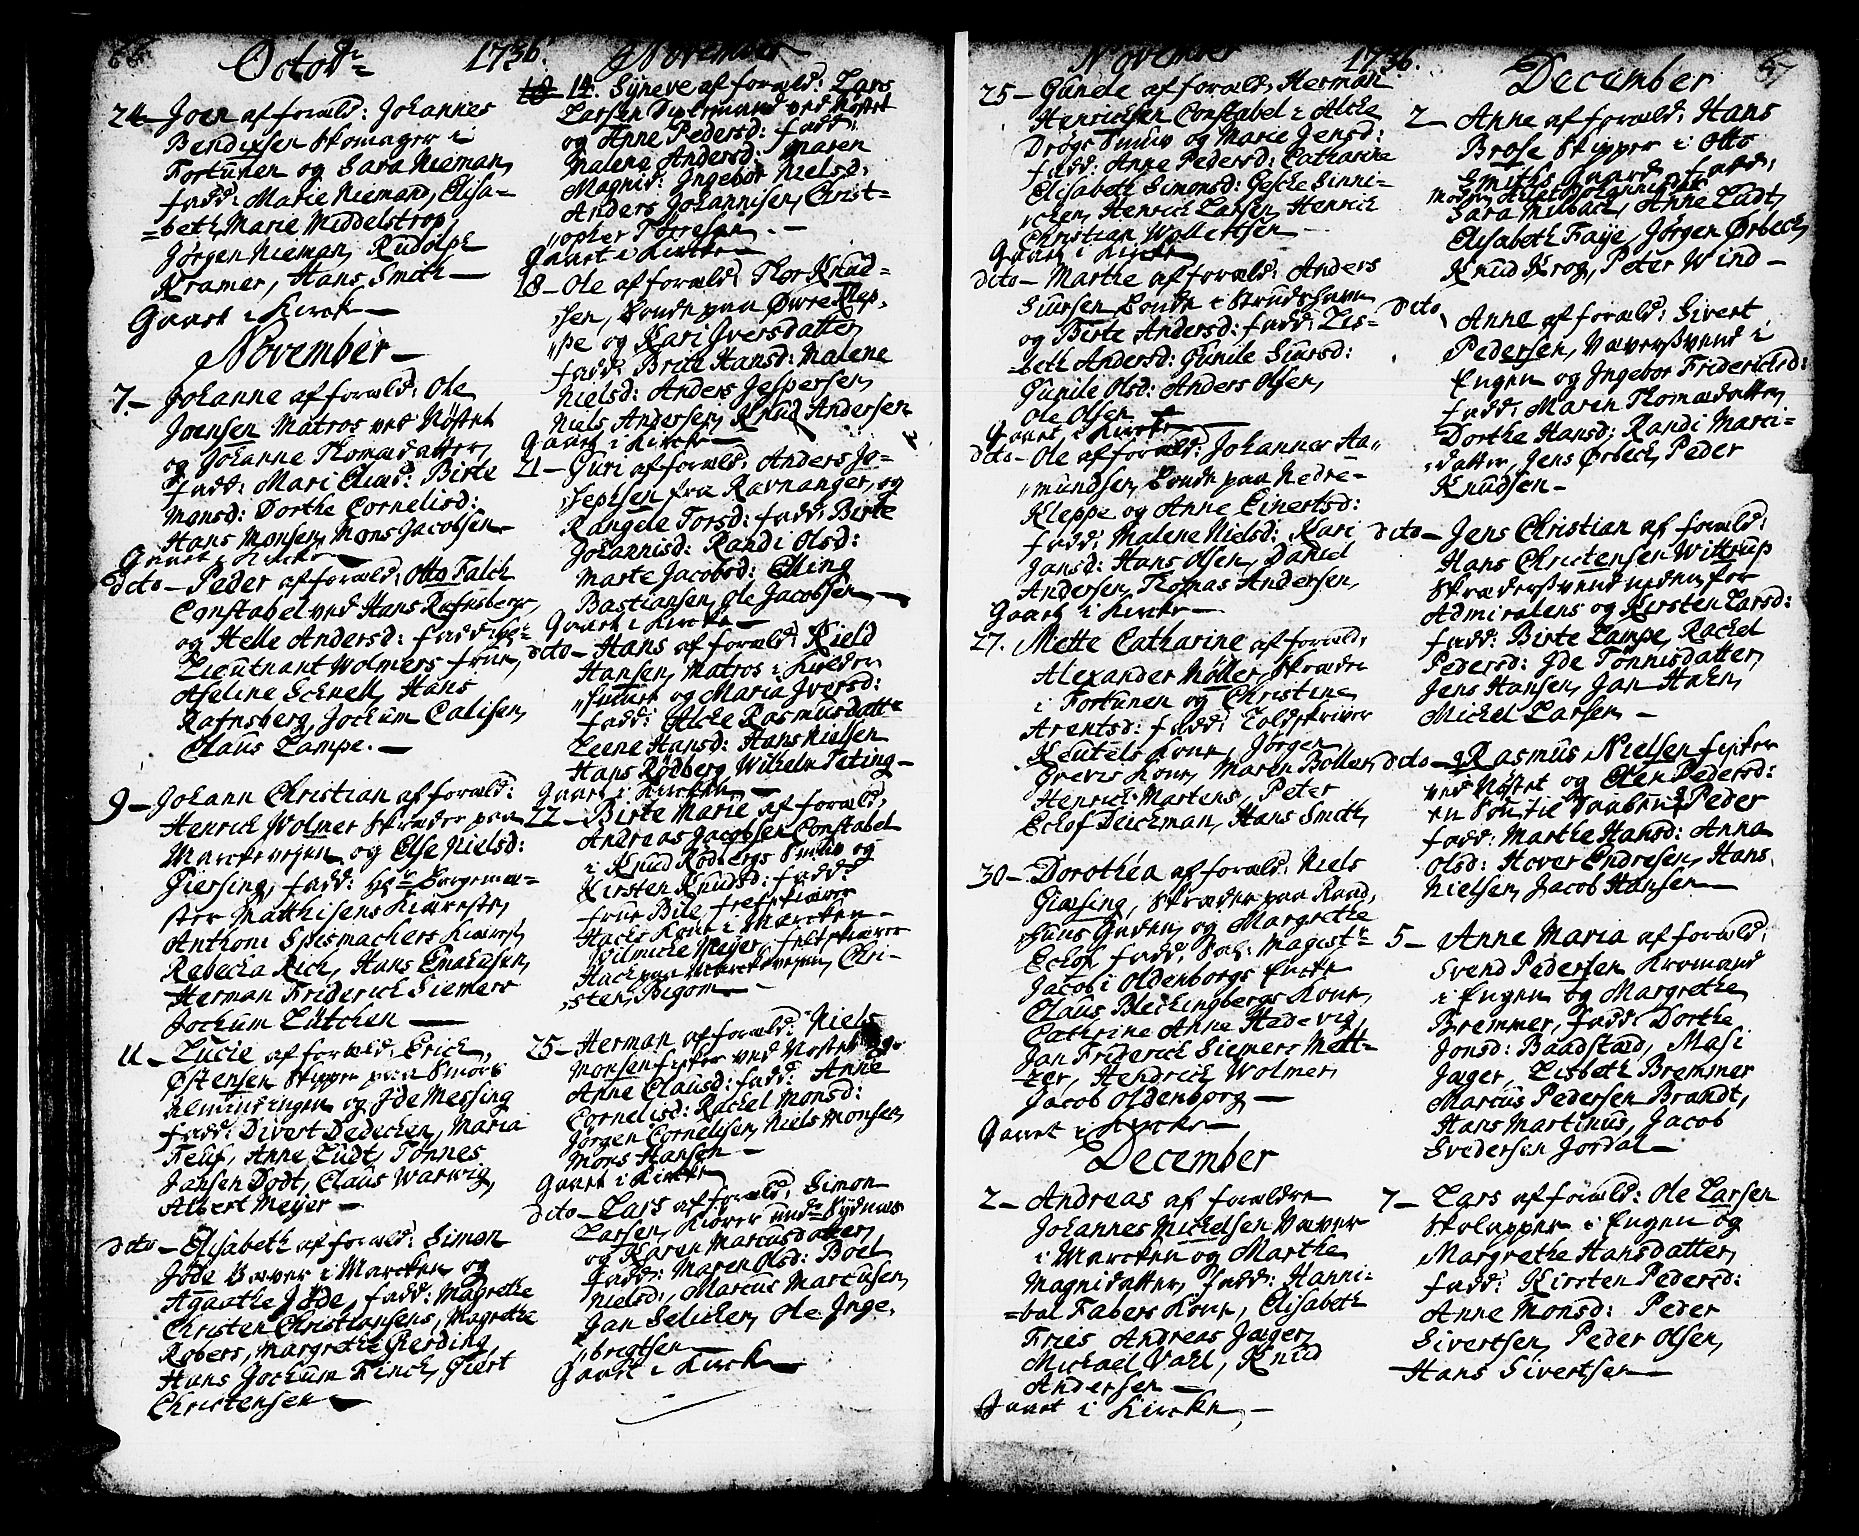 66
Octobr
1736.
November
24 – Joen af foræld: Johannes
Bendixsen Skomager i
Fortunen og Sara Nieman,
fadd: Marie Nieman, Elisa-
=beth Marie Middelstrop,
Jørgen Nieman, Rudolph
Kramer, Hans Smith –
Gaaet i Kirck –
November –
7 – Johanne af foræld: Ole
Joensen Matros ved Nøstet
og Johanne Thomædatter,
fadd: Mari Eliæd: Birte
Monsd: Dorthe Cornelisd:
Hans Monsen, Mons Jacobsen
Gaaet i Kircke –
dito – Peder af foræld: Otto Falch
Constabel ved Hans Rafnsbergs,
og Helle Andersd: fadd:
Lieutnant Wolmers frue,
Aseline Schnell, Hans
Rafnsberg, Jochum Calisen,
Claus Lampe. –
9 – Johann Christian af foræld:
Henrich Wolmer Skræder paa
Marckevejen og Else Nielsd:
Giersing, fadd: Hr Borgeme=
ster Matthisens Kiæreste,
Anthoni Spismachers Kiærest,
Rebecka Rich, Hans Emahusen,
Herman Friderich Siemers
Jochum Lütchen –
11 – Lucie af foræld: Erich
Østensen Skipper paa Smørs
Almindingen og Ide Messing
fadd: Divert Dedechen, Maria
Feuf, Anne Ludt, Tønnes
Jansen Dodt, Claus Warwig,
Albert Meyer –
dito – Elisabeth af foræld: Simon
Jøde Væver i Marcken og
Agaathe Jøde, fadd: Magrethe
Christen Christiansens, Magrethe
Robers, Margrethe Gierding,
Hans Jochum Finck, Giert
Christensen –
14. Syneve af foræld: Lars
Larsen ved Nøstet
og Anne Pedersd: fadd:
Malene Andersd: Maren
Magnid: Ingebor Nielsd:
Anders Johannisen, Christ-
opher Torresen –
Gaaet i Kircke –
18 – Ole af foræld: Thor Knud=
sen, Bonde paa Øvre Klep,
pe og Kari Iversdatter,
fadd: Brite Hansd: Malene
Nielsd: Anders Jespersen,
Niels Andersen, Knud Andersen
Gaaet i Kircke –
21 – Guri af foræld: Anders Jo=
sephsen fra Ravnanger, og
Rangele Torsd: fadd: Birte
Johannisd: Randi Olsd:
Marte Jacobsd: Elling
Bastiansen, Ole Jacobsen –
Gaaet i Kircke –
dito – Hans af foræld: Kield
Hansen, Matros i
og Maria Iversd:
fadd: Alche Rasmusdatt
Leene Hansd: Hans Nielsen
Hans Rødberg, Wilhelm Teting –
Gaaet i Kircken –
22 – Birte Marie af foræld:
Andreas Jacobsen Constabel
i Knud Rødbergs Smuw og
Kirsten Knudsd: fadd:
frue Bile, feltskiærer
Hachs Kone i Marcken –
Wilmiche Meyer, feltskiærer
Hach paa Marckevejen, Chri-
sten, Bigom –
25 – Herman af foræld: Niels
Monsen fisker ved Nøstet og
Anne Clausd: fadd: Anne
Cornelisd: Rachel Monsd:
Jørgen Cornelisen, Niels Monsen,
Mons Hansen –
Gaaet i Kircke
dito – Lars af foræld: Simon
Larsen, Kiører under Sydnæs
og Karen Marcusdatter,
fadd: Maren Olsd: Boel
Nielsd: Marcus Marcusen,
Jan Selicher, Ole Inge,
brigtsen –
Gaaet i Kircke
November
1736.
December
67
25 – Gunele af foræld: Herman
Henrichsen Constabel i Alche
Drøgs Smuw og Marie Jensd:
fadd: Anne Pedersd: Catharine
Elisabeth Simonsd: Gesche Sinni-
chen, Henrich Larsen, Henrich
Christian Wollertsen –
Gaaet i Kircke
dito – Marthe af foræld: Anders
Siursen Bonde i Strudshavn
og Birte Andersd: fadd: Lis-
=beth Andersd: Gunile Siursd:
Gunile Olsd: Anders Olsen,
Ole Olsen
Gaaet i Kircke –
dito – Ole af foræld: Johannes Aa,
mundsen, Bonde paa Nedre-
Kleppe og Anne Einertsd:
fadd: Malene Nielsd: Kari
Jansd: Hans Olsen, Daniel
Andersen, Thomas Andersen,
Gaaet i Kircke –
27. Mette Catharine af foræld:
Alexander Møller, Skræder
i Fortunen og Christine
Arentsd: fadd: Toldskriver
Keutels Kone, Jørgen
Greves Kone, Maren Boller,
Henrich Martens, Peter
Echof Deichman, Hans Smith,
30 – Dorothea af foræld: Niels
Giæsing, Skræder paa Raad,
huus Gaden, og Margrethe
Echof fadd: Sal: Magistr
Jacob i Oldenborgs Encke
Claus Bleckingbergs Kone,
Cathrine Anne Hedevig,
Jan Friderich Siemers Mett-
zer, Hendrich Wolmer,
Jacob Oldenborg –
Gaaet i Kircke –
December
2 – Andreas af forældre
Johannes Michelsen Væver
i Marcken og Marthe
Magnidatter, fadd: Hanni-
=bal Fabers Kone, Elisabeth
Fries Andreas Jæger,
Michael Vahl, Knud
Andersen –
Gaaet i Kircke, –
2 – Anne af foræld: Hans
Brose Skipper i Otto
Smiths Gaard, fadd:
Sara Milbach, Anne Ludt,
Elisabeth Faye, Jørgen Ørbech,
Knud Krog, Peter Wind –
dito
Anne af foræld: Sivert
Pedersen, Væversvend i
Engen og Ingebor Friderichsd:
fadd: Maren Thomædatter,
Dorthe Hansd: Randi Marci-
datter, Jens Ørbech, Peder
Knudsen –
dito – Jens Christian af foræld:
Hans Christensen Wittrup
Skrædersvend neden for
Admiralens og Kirsten Larsd:
fadd: Birte Lampe, Rachel
Pedersd: Ide Tønnisdatter,
Jens Hansen, Jan Hahn,
Michel Larsen –
dito – Rasmus Nielsen fisker
ved Nøstet og Elen Pedersd:
en Søn til Daaben Peder
fadd: Marthe Hansd: Anna
Olsd: Hover Endresen, Hans
Nielsen, Jacob Hansen –
5 – Anne Maria af foræld:
Svend Pedersen Kromand
i Engen og Margrethe
Bremmer, fadd: Dorthe
Jonsd: Baadstæd, Masi
Jæger, Lisbeth Bremmer
Marcus Pedersen Brandt,
Hans Martinus, Jacob
Svedersen Jordal –
7 – Lars af foræld: Ole Larsen
Skolapper i Engen og
Margrethe Hansdatter,
fadd: Kirsten Pedersd:
Anne Monsd: Peder
Sivertsen, Peder Olsen,
Hans Sivertsen –